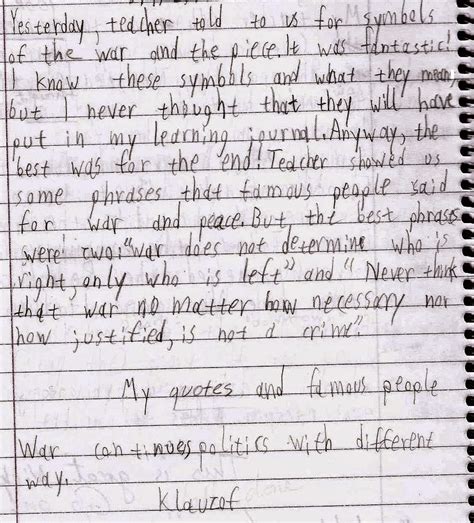 Yesterday, teacher told to us for symbols
of the war and the piece. It was fantastic!
I know these symbols and what they mean,
but I never thought that they will have
put in my learning journal. Anyway, the
best was for the end! Teacher showed us
some phrases that famous people said
for war and peace. But, the best phrases
were two: "War does not determine who is
right, only who is left" and "Never think
that war no matter how necessary nor
how justified, is not a crime".
My quotes and famous people
War, continues politics with different
way.
Klauzof